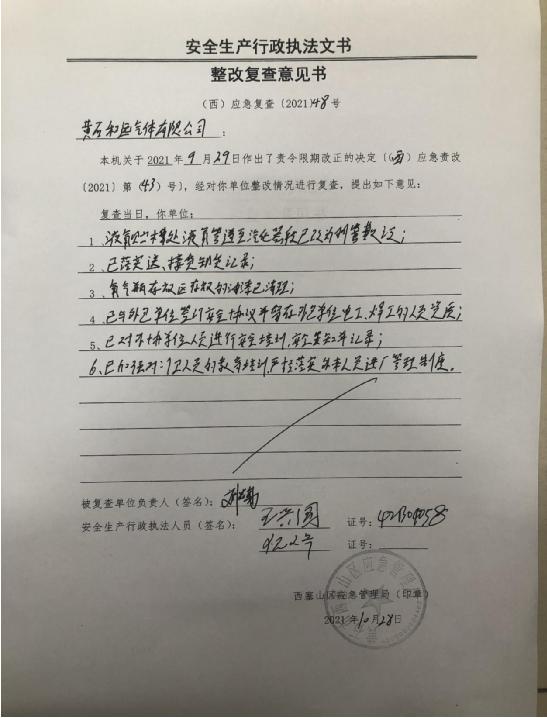 安全生产行政执法文书
整改复查意见书
（西）应急复查〔2021〕48号
黄石和运气体有限公司：
本机关于2021年9月29日作出了责令限期改正的决定〔（西）应急责改
〔2021〕第（43）号〕，经对你单位整改情况进行复查，提出如下意见：
复查当日，你单位：
1、液氧贮槽处液氧管道至汽化器段已改为刚管敷设；
2、已落实送、接货制度记录；
3、氧气瓶存放区存放的油漆已清理；
4、已与外包单位签订安全协议并留存外包单位电工、焊工的人员资质；
5、已对外协单位人员进行安全培训，安全告知并记录；
6、已加强对门卫人员的教育培训，严格落实外来人员进厂管理制度。
被复查单位负责人（签名）：
安全生产行政执法人员（签名）：王兴国 证号：
证号：
西塞山区应急管理局（印章）
2021年10月28日